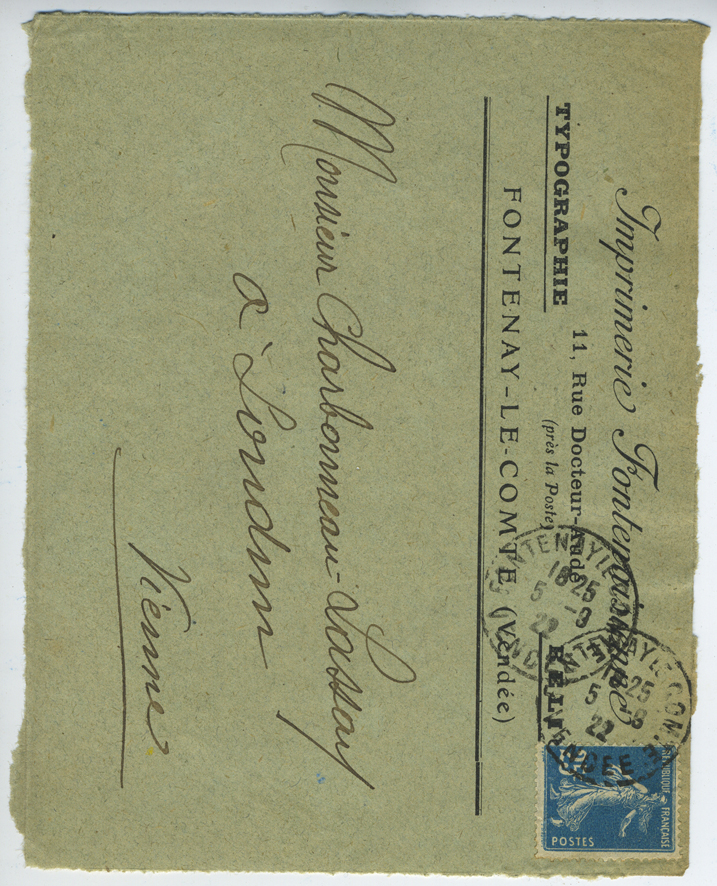 Imprimerie Fontenaisienne
TYPOGRAPHIE
11, Rue Docteur-Audé
(près la Poste)
REL
FONTENAY-LE-COMTE (Vendée)
RÉPUBLIQUE FRANÇAISE
25
POSTES
FONTENAY LE COMTE
18 25
5 -8
22
VENDEE
FONTENAY LE COMTE
18 25
5 -8
22
VENDEE
Monsieur Charbonneau-Lassay
à Loudun
Vienne